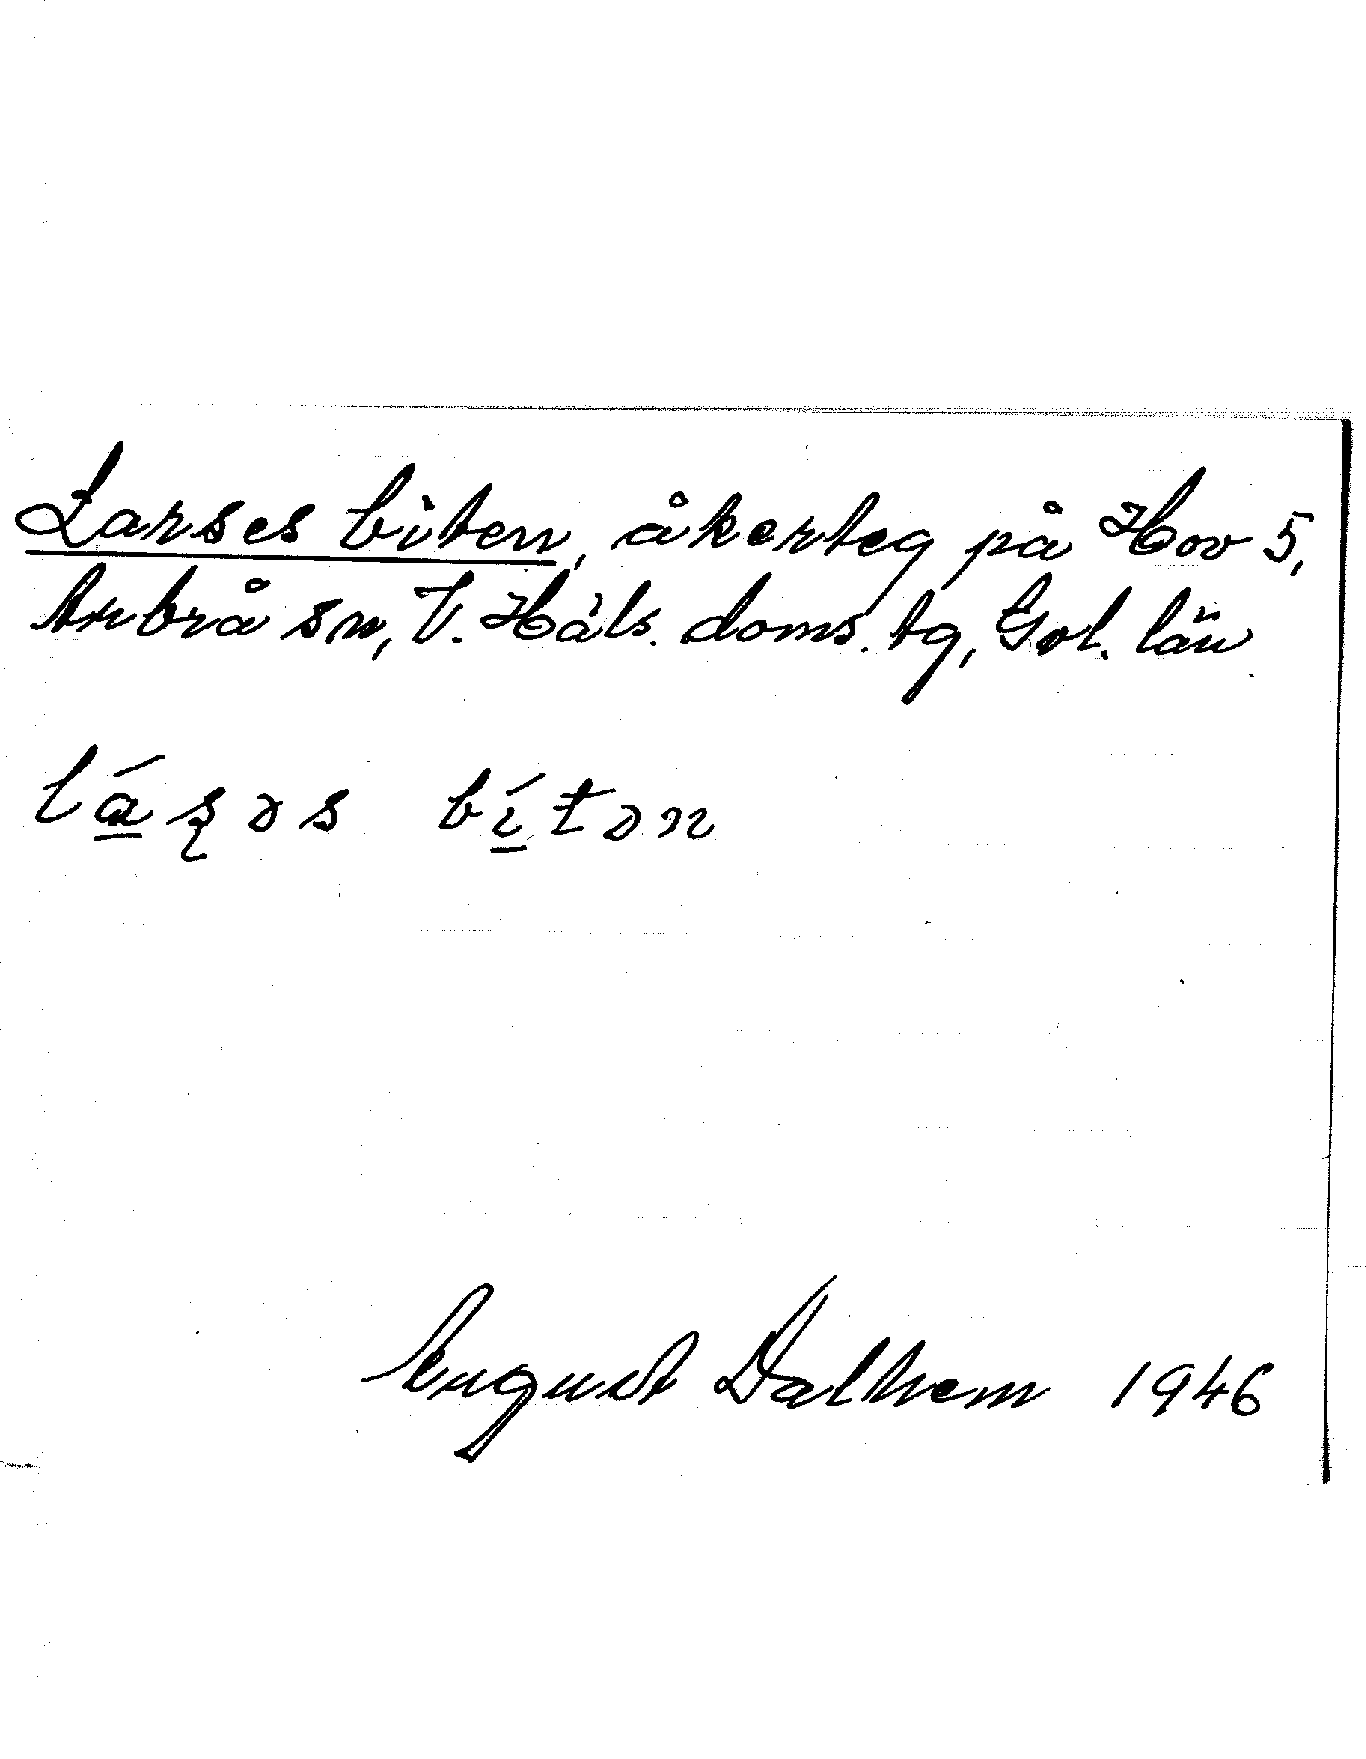 Larses biten, åkerteg på Hov 5,
Arbrå sn, V. Häls. doms. tg, Gvl. län
lá̱ʂəs bí̱tən
August Dalhem 1946